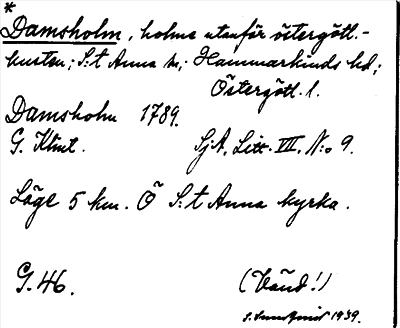 *
Damsholm, holme utanför östergötl.-
kusten; S:t Anna sn; Hammarkinds hd;
Östergötl. l.
Damsholm 1789.
G. Klint. SjA, Litt. VII, N:o 9.
Läge 5 km. Ö S:t Anna kyrka.
G. 46. (Vänd!)
S. 1939.